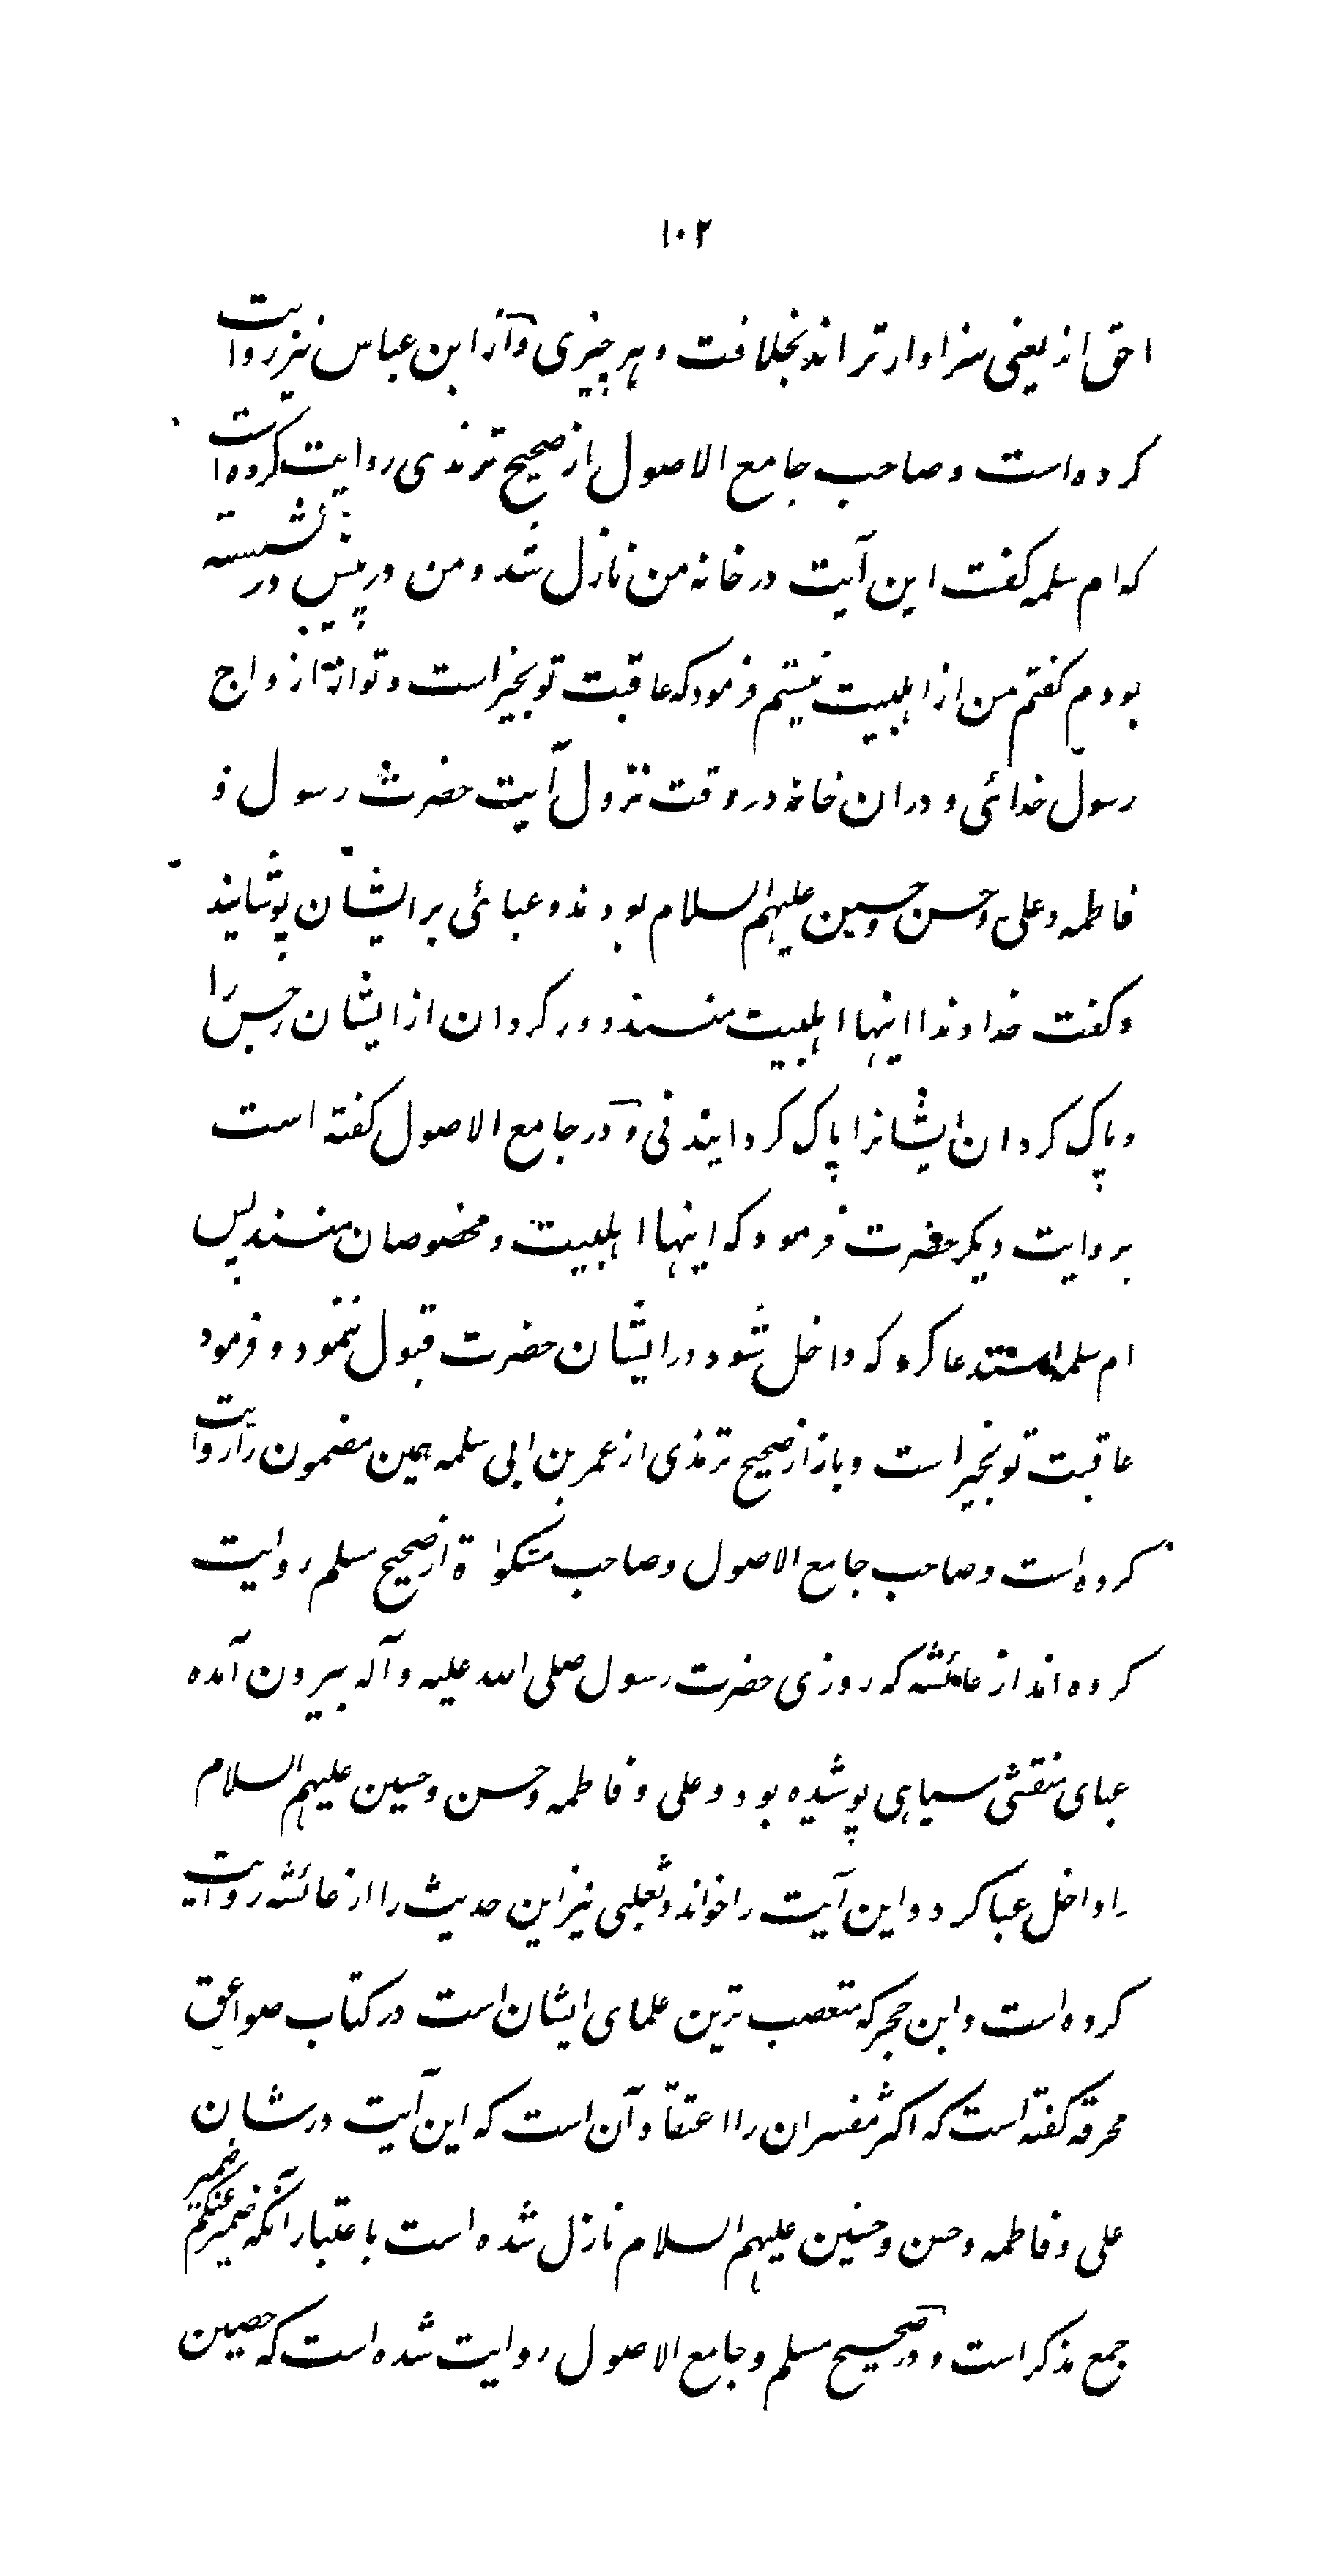 ١٠٢
احق اند یعنی سزاوارتر اند بخلافت و هر چیزی و آز ابن عباس نیز روایت
کرده است و صاحب جامع الاصول از صحیح ترمذی روایت کرده است
که ام سلمه کفت این آیت در خانه من نازل شد و من در پیش در نشسته
بودم کفتم من از اهلبیت نیستم فرمود که عاقبت تو بخیر است و تو از ازواج
رسول خدائی و دران خانه در وقت نزول آیت حضرت رسول و
فاطمه و علی و حسن و حسین علیهم السلام بودند و عبائی بر ایشان پوشانید
و کفت خداوندا اینها اهلبیت منند دور کردان از ایشان رجس را
و پاک کردان ایشانرا پاک کردانیدنی و در جامع الاصول کفته است
بروایت دیکر حضرت فرمود که اینها اهلبیت و مخصوصان منند پس
ام سلمه استدعا کرد که داخل شود در ایشان حضرت قبول ننمود و فرمود
عاقبت تو بخیر است و باز از صحیح ترمذی از عمر بن ابی سلمه همین مضمون را روایت
کرده است و صاحب جامع الاصول و صاحب مشکوٰة از صحیح مسلم روایت
کرده اند از عائشه که روزی حضرت رسول صلی الله علیه و آله بیرون آمده
عبای منقش سیاهی پوشیده بود و علی و فاطمه و حسن و حسین علیهم السلام
را داخل عبا کرد و این آیت را خواند و ثعلبی نیز این حدیث را از عائشه روایت
کرده است و ابن حجر که متعصب ترین علمای ایشان است در کتاب صواعق
محرقه کفته است که اکثر مفسران را اعتقاد آن است که این آیت در شان
علی و فاطمه و حسن و حسین علیهم السلام نازل شده است باعتبار آنکه ضمیر عنکم ضمیر
جمع مذکر است و در صحیح مسلم و جامع الاصول روایت شده است که حصین